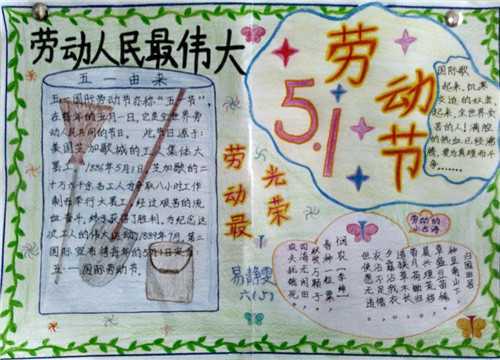 劳动人民最伟大
五一由来
五一国际劳动节亦称"五一节",
在每年的五月一日,它是全世界劳
动人民共同的节日。此节日源于:
美国芝加哥城的工人集体大
罢工,1886年5月1日,芝加哥的二
十万六千余名工人为争取八小时工作
制而举行大罢工,经过艰苦的流
血奋斗,终于获得了胜利,为纪念这
次工人的伟大运动,1889年7月,第二
国际宣布将每年的5月1日定为:
五一国际劳动节。
劳动最
光荣
易静雯
六(5)
5.1
劳动节
国际歌
起来,饥寒
交迫的奴隶,
起来,全世界受
苦的人!满腔
的热血已经沸
腾,要为真理而斗
争……
劳动的
小古诗
归园田居
种豆南山下
草盛豆苗稀
晨兴理荒秽
带月荷锄归
道狭草木长
夕露沾我衣
衣沾不足惜
但使愿无违
悯农【李绅】
春种一粒粟
秋收万颗子
四海无闲田
农夫犹饿死